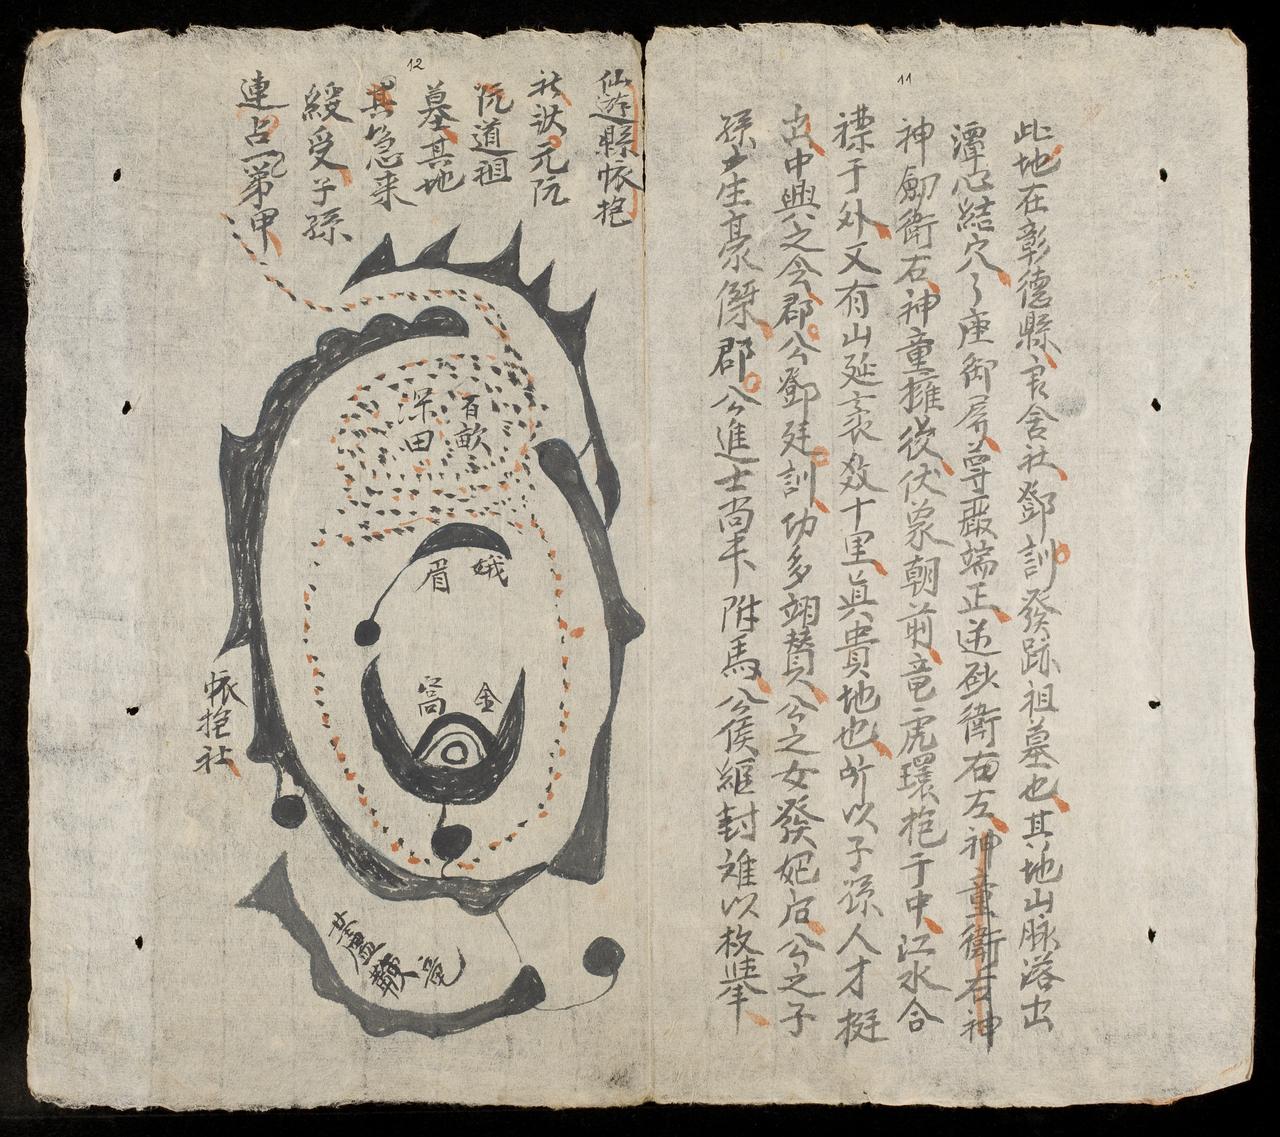 11
此地在彰德縣良舍社鄧訓發跡祖墓也其地山脉落出
潭心結穴穴座御屏尊嚴端正逆砂衛右左神童衛右神
神劍衛右神童擁後伏象朝前竜虎環抱于中江水合
襟于外又有山延袤数十里真貴地也所以子孫人才挺
出中興之会郡公鄧廷訓功多翊賛公之女發妃后公之子
孫生豪傑郡公進士尚書附馬公侯繼封难以枚举
12
仙遊縣帐抱
社狀元阮
阮道祖
墓其地
其急来
綬受子孫
連占一第甲
百畝
深田
娥
眉
金
窩
帐抱社